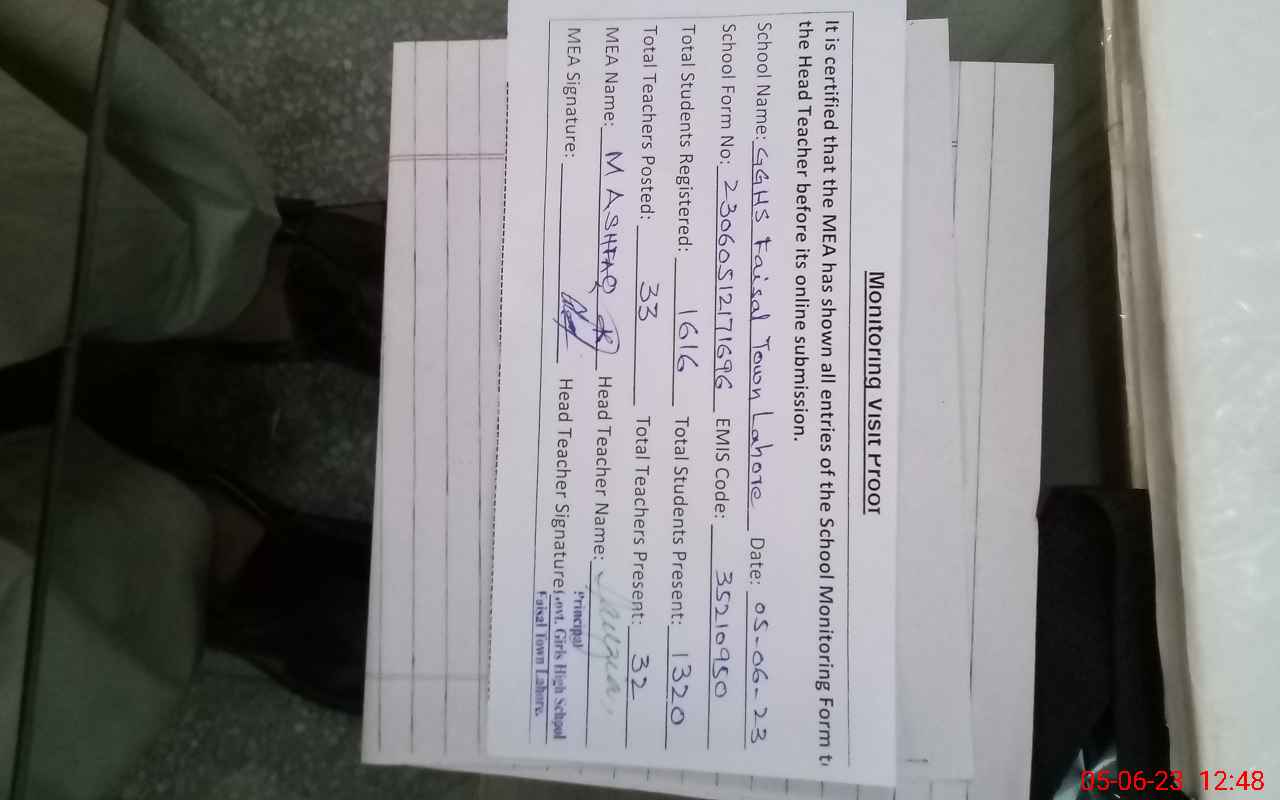 Monitoring Visit Proof
It is certified that the MEA has shown all entries of the School Monitoring Form t
the Head Teacher before its online submission.
School Name: GGHS Faisal Town Lahore Date: 05-06-23
School Form No: 23060512171696 EMIS Code: 35210950
Total Students Registered: 1616 Total Students Present: 1320
Total Teachers Posted: 33 Total Teachers Present: 32
MEA Name: M ASHFAQ Head Teacher Name:
MEA Signature: Head Teacher Signature:
Principal
Govt. Girls High School
Faisal Town Lahore.
05-06-23 12:48